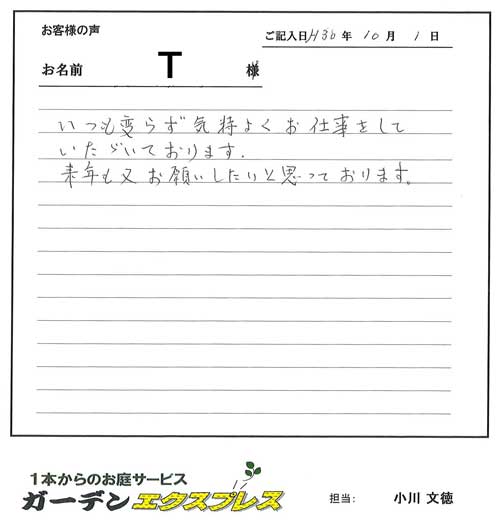 お客様の声
ご記入日 H30 年 10 月 1 日
お名前 T 様
いつも変らず気持よくお仕事をして
いただいております.
来年も又お願いしたいと思っております。
1本からのお庭サービス
ガーデンエクスプレス
担当: 小川 文徳